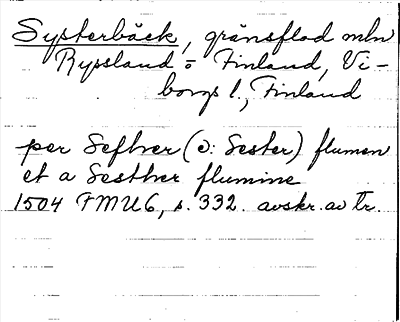 Systerbäck, gränsflod mln
Ryssland o Finland, Vi-
borgs l., Finland
per Sefther (ɔ: Sester) flumen
et a Sesther flumine
1504 FMU6, s. 332. avskr. av Tr.